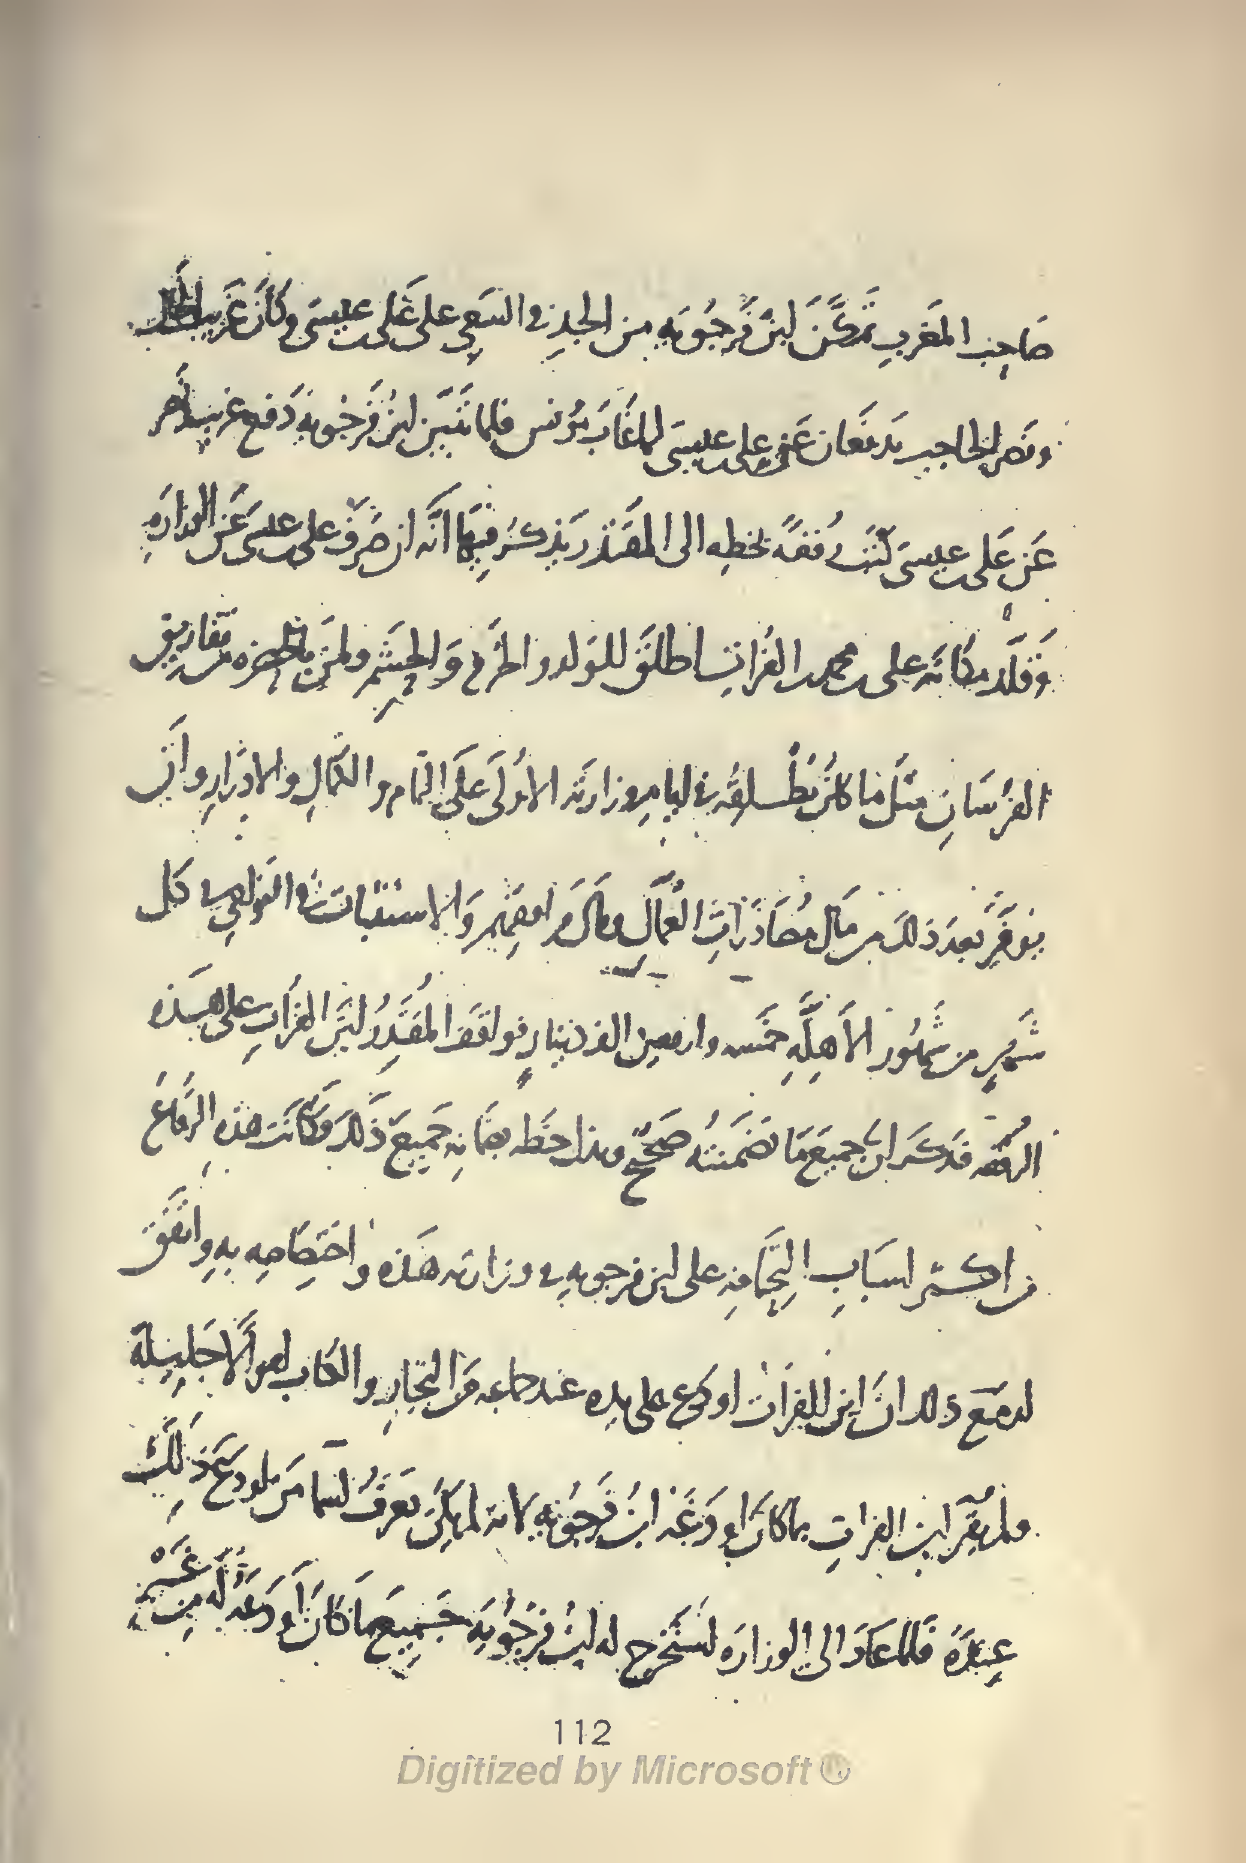 صَاحِب المَغربِ تمَكَّنَ ابنُ فَرجُويَهِ من الجِدِ في السَعي على عَلى بن عيسَى وكَانَ غَريب الخَال
ونَصر الحَاجب يَدفعَان عَن على بن عيسَى لما غَابَ مُونس فلما تَبَيَّن ابنُ فَرجُويهِ دَفع غَريب ونَصر
عَن عَلى بن عيسَى كتبَ رُقعَةً بخطه الى المقتَدر يَذكرُ فيهَا انَّه ان صَرَفَ على بن عيسَى عَن الوزارَه
وقلَّد مكَانَه على بن محمد بن الفُرات اطلَقَ للوَلد والحُرَم وَالحشَم ولمَن بالحضره من تفاريق
الفُرسَانِ مثلَ مَا كانَ يُطلقُه في ايام وزارته الاُولَى عَلَى التمام والكمَالِ والادرَارِ وانَّه
يوفّر بَعدَ ذلك من مَال مُصَادَرَاتِ العُمَّالِ ومال مرافقهم وَالاستثباتَ في النواحي كل
شَهرٍ من شُهُور الأَهِلَّهِ خمسَه واربعين الف دينارٍ فواقَفَ المُقتَدرُ ابنَ الفُراتِ على هَذه
الرقعَه فذكَر انّ جميعَ مَا تضمّنَتْهُ صَحيحٌ وبذل خطّه بضَمَانه جَميعَ ذَلك وكَانَت هذه الرقَاعُ
من اكبر اسبَاب التِحَامه على ابن فرجويه في وزارته هَذه واختصَاصِه به واتفَقَ
له مَع ذلك انّ ابن الفرَات اودع على يده عند جماعه من التجارِ والكتاب اموالًا جَليلةً
ولم يُقر ابن الفراتِ بما كانَ اودَعَهُ ابنُ فَرجُويَه لانه لم يكن يَعرفُ اسما من اودعَ ذلكَ
عندَهُ فَلما عَادَ الى الوزارَه استخرج له ابنُ فرجُويَه جَميعَ مَا كانَ اودَعَهُ لهُ من غَير
112
Digitized by Microsoft ®